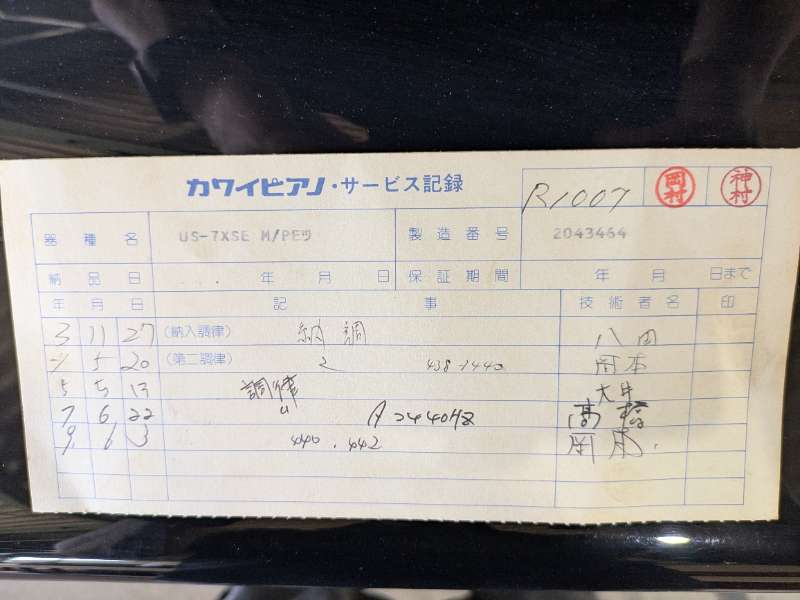 カワイピアノ・サービス記録 R1007 岡村 神村
器種名 US-7XSE M/PEﾂ 製造番号 2043464
納品日 年 月 日 保証期間 年 月 日まで
年 月 日 記事 技術者名 印
3 11 27 (納入調律) 納調 八田
5 20 (第二調律) 438→440 岡本
5 5 13 調律 大井
7 6 22 〃 A=440Hz
9 6 3 440.442